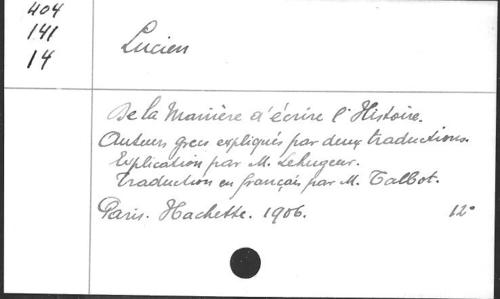 404
141
14
Lucien
De la Manière d'écrire l'Histoire.
Auteurs grecs expliqués par deux traductions.
Explication par M. Lehugeur.
Traduction en français par M. Talbot.
Paris. Hachette. 1906. 12°